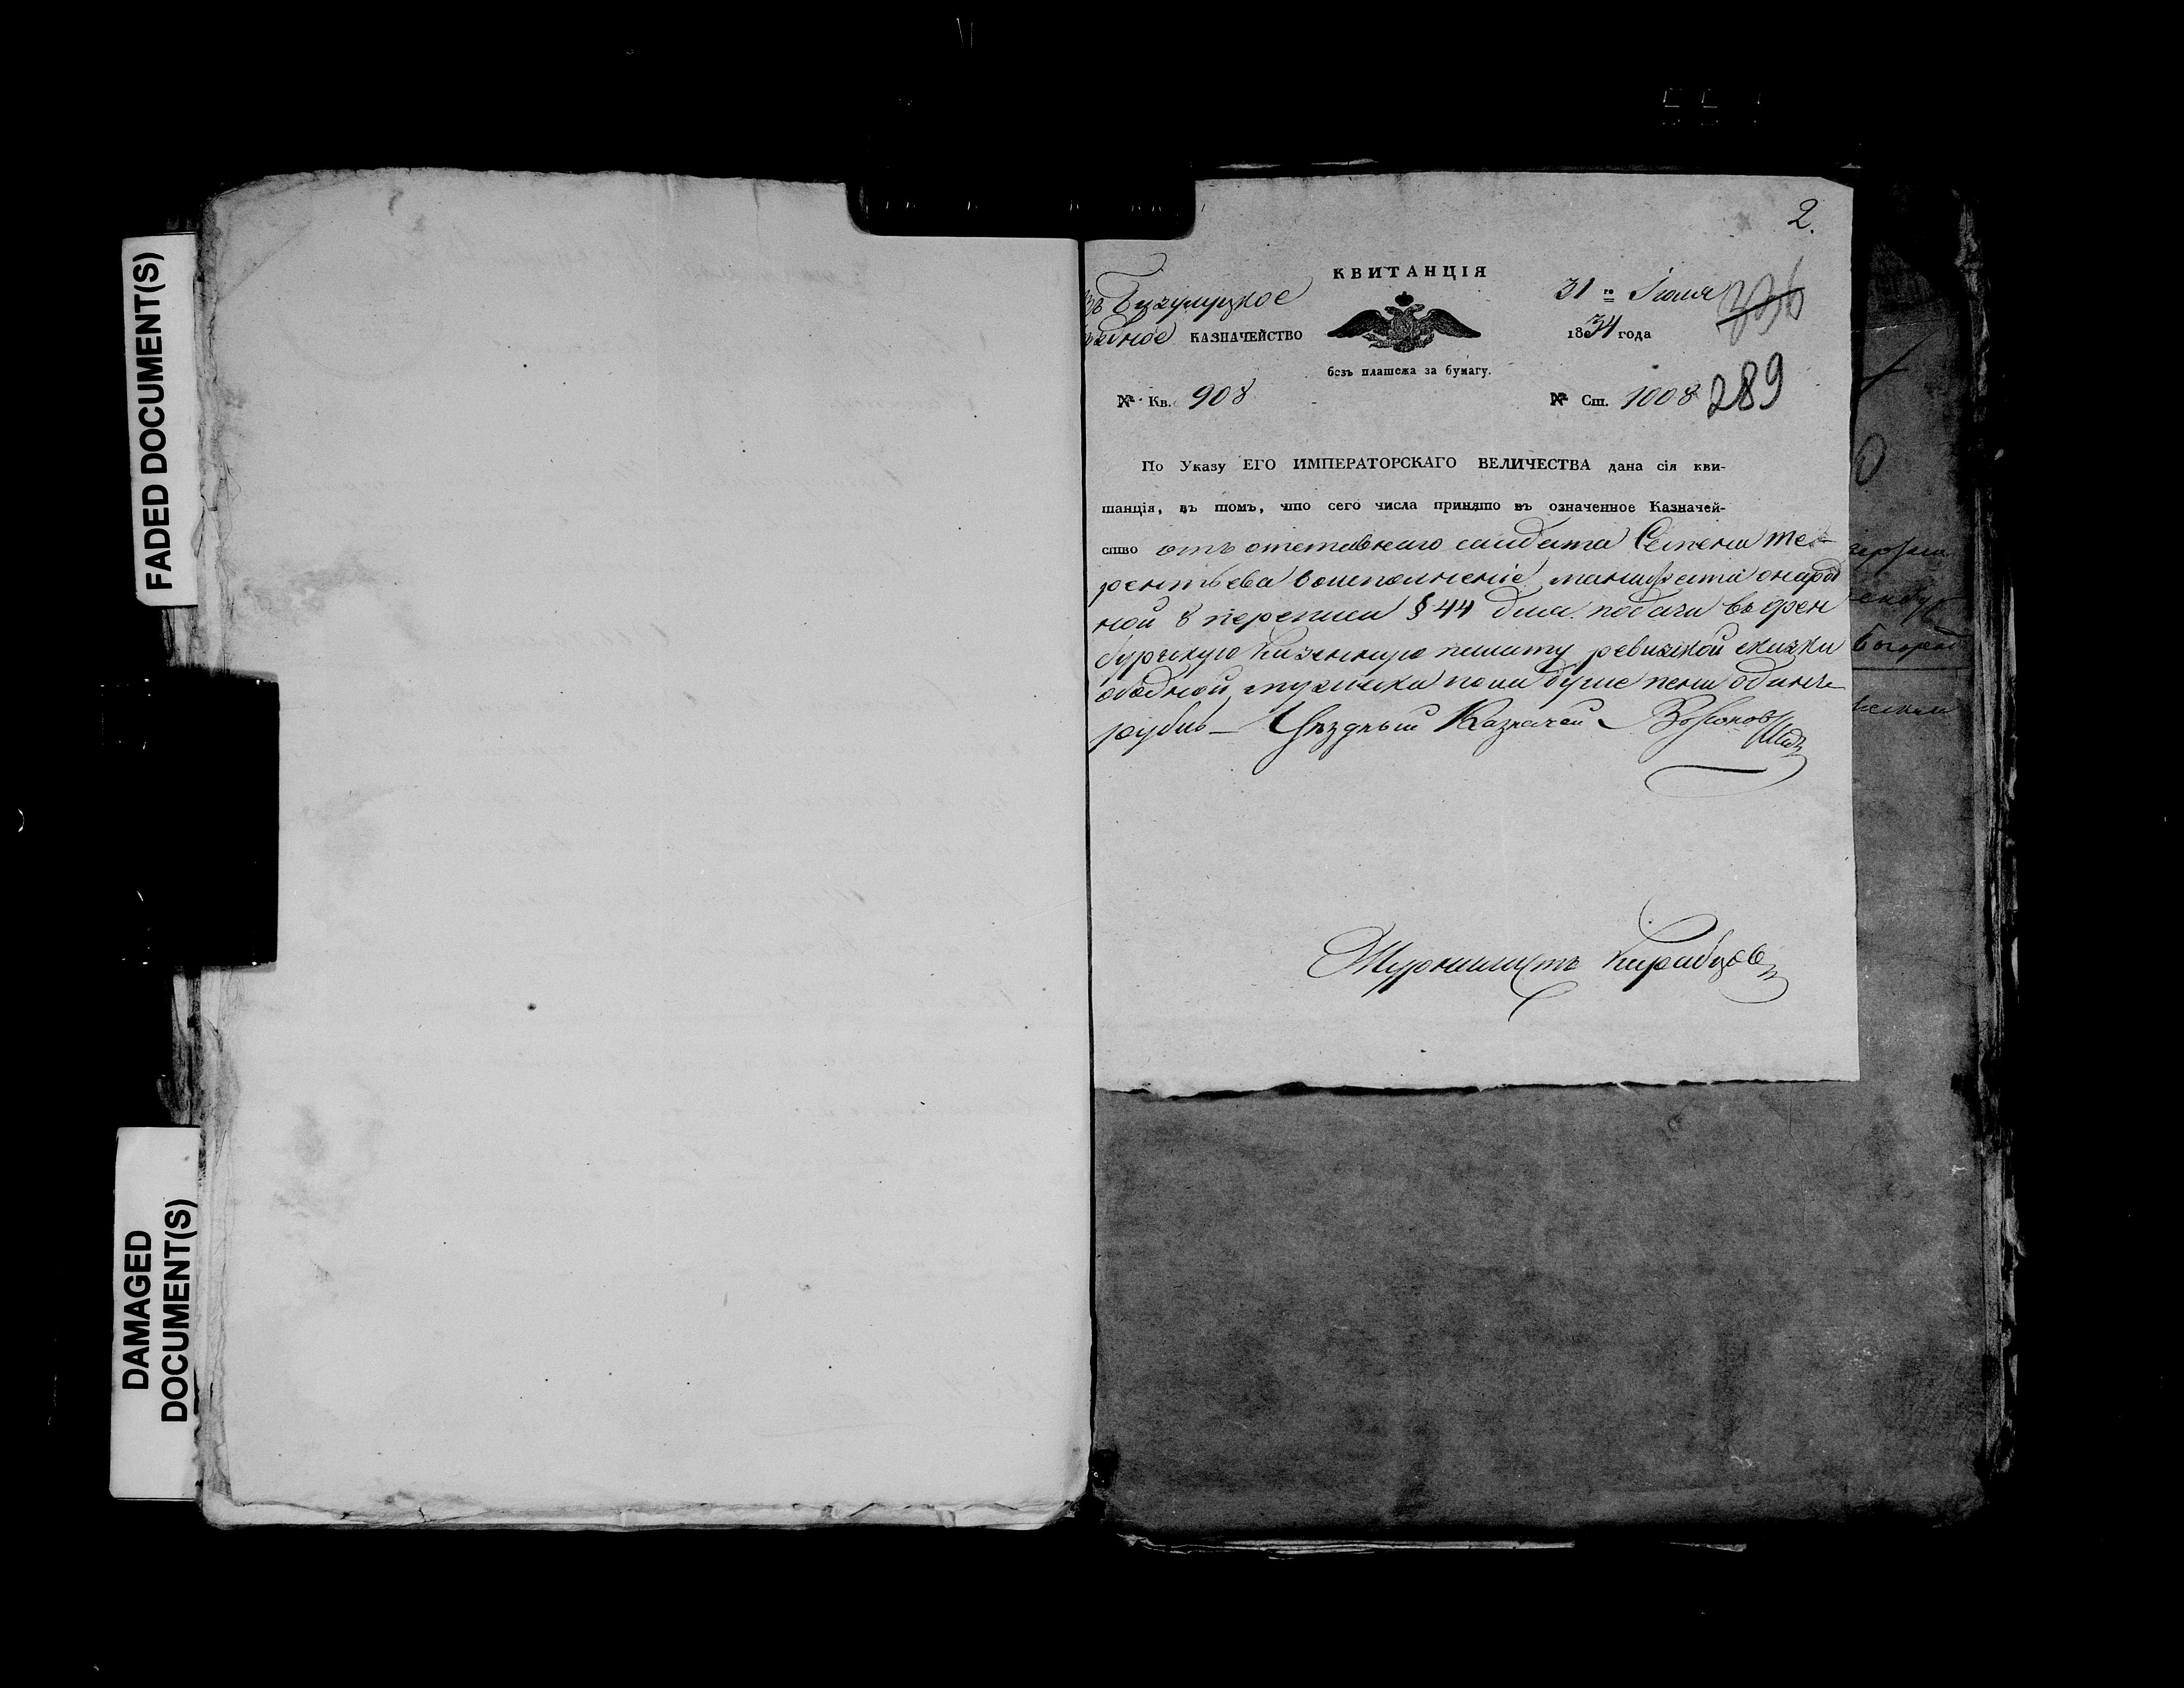 FADED DOCUMENT(S)
DAMAGED
DOCUMENT(S)
2.
КВИТАНЦІЯ
Бузулуцкое
КАЗНАЧЕЙСТВО
31 го Іюля
1834 года
336
безъ платежа за бумагу.
№ Кв. 908
№ Ст. 1008
289
По Указу ЕГО ИМПЕРАТОРСКАГО ВЕЛИЧЕСТВА дана сія кви-
танція, въ томъ, что сего числа принято въ означенное Казначей-
ство отъ отставнаго салдата Семена Те-
рентьева воисполненіе манифеста онарод
ной 8 переписи § 44 для подачи въ Орен
бургскую Казенную палату ревизской скаски
ободной мужеска пола душе пени одинъ
рубль — Уѣздный Казначей
Журналистъ